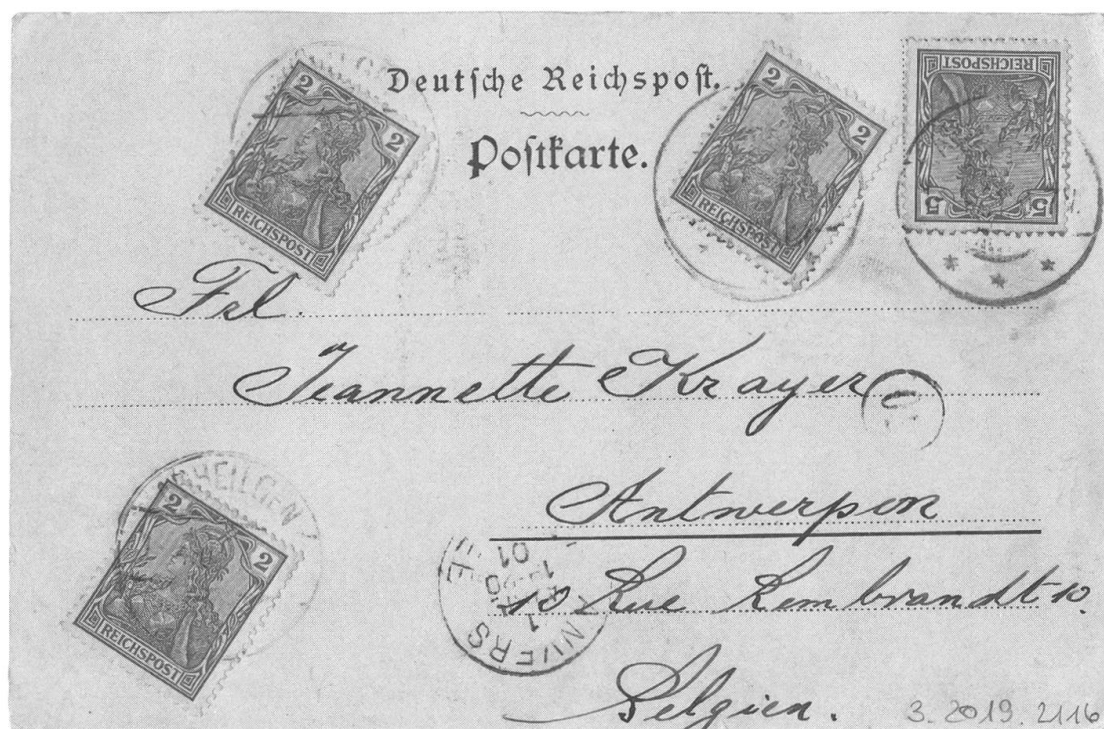 Deutsche Reichspost.
Postkarte.
2 2
REICHSPOST
2 2
REICHSPOST
5 5
REICHSPOST
Frl.
Jeannette Krayer
Antwerpen
10 Rue Rembrandt 10.
Belgien.
2 2
REICHSPOST
HEILGEN
ANVERS
01
3.2019.2116